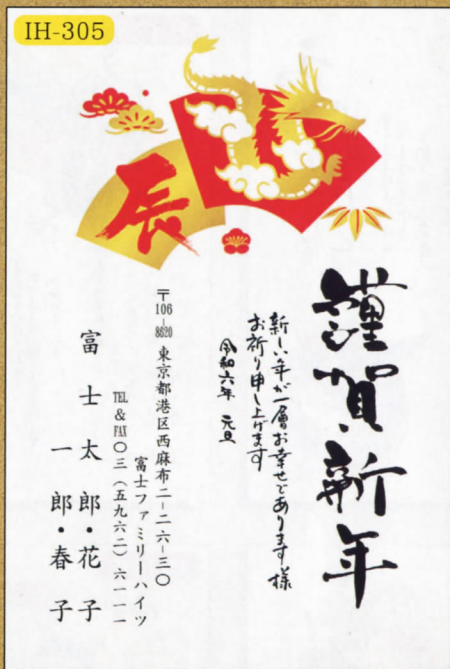 IH-305
辰
謹賀新年
新しい年が一層お幸せであります様
お祈り申し上げます
令和六年 元旦
〒106-8620 東京都港区西麻布二-二六-三〇
富士ファミリーハイツ
TEL&FAX〇三(五九六二)六一一一
富士太郎・花子
一郎・春子